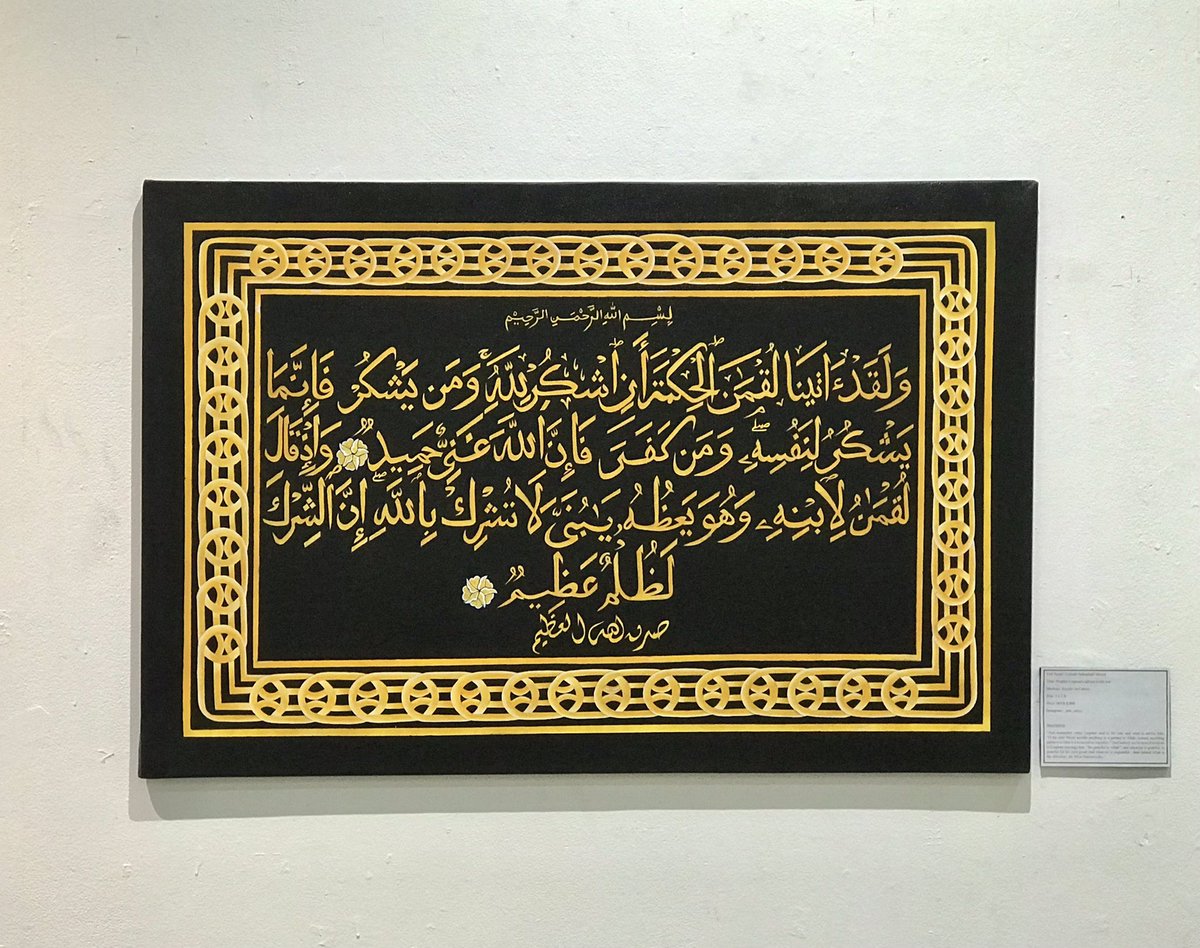 بِسْمِ اللهِ الرَّحْمٰنِ الرَّحِيْمِ
وَلَقَدْ ءَاتَيْنَا لُقْمَٰنَ ٱلْحِكْمَةَ أَنِ ٱشْكُرْ لِلَّهِ ۚ وَمَن يَشْكُرْ فَإِنَّمَا
يَشْكُرُ لِنَفْسِهِۦ ۖ وَمَن كَفَرَ فَإِنَّ ٱللَّهَ غَنِىٌّ حَمِيدٌ وَإِذْ قَالَ
لُقْمَٰنُ لِٱبْنِهِۦ وَهُوَ يَعِظُهُۥ يَٰبُنَىَّ لَا تُشْرِكْ بِٱللَّهِ ۖ إِنَّ ٱلشِّرْكَ
لَظُلْمٌ عَظِيمٌ
صدق الله العظيم